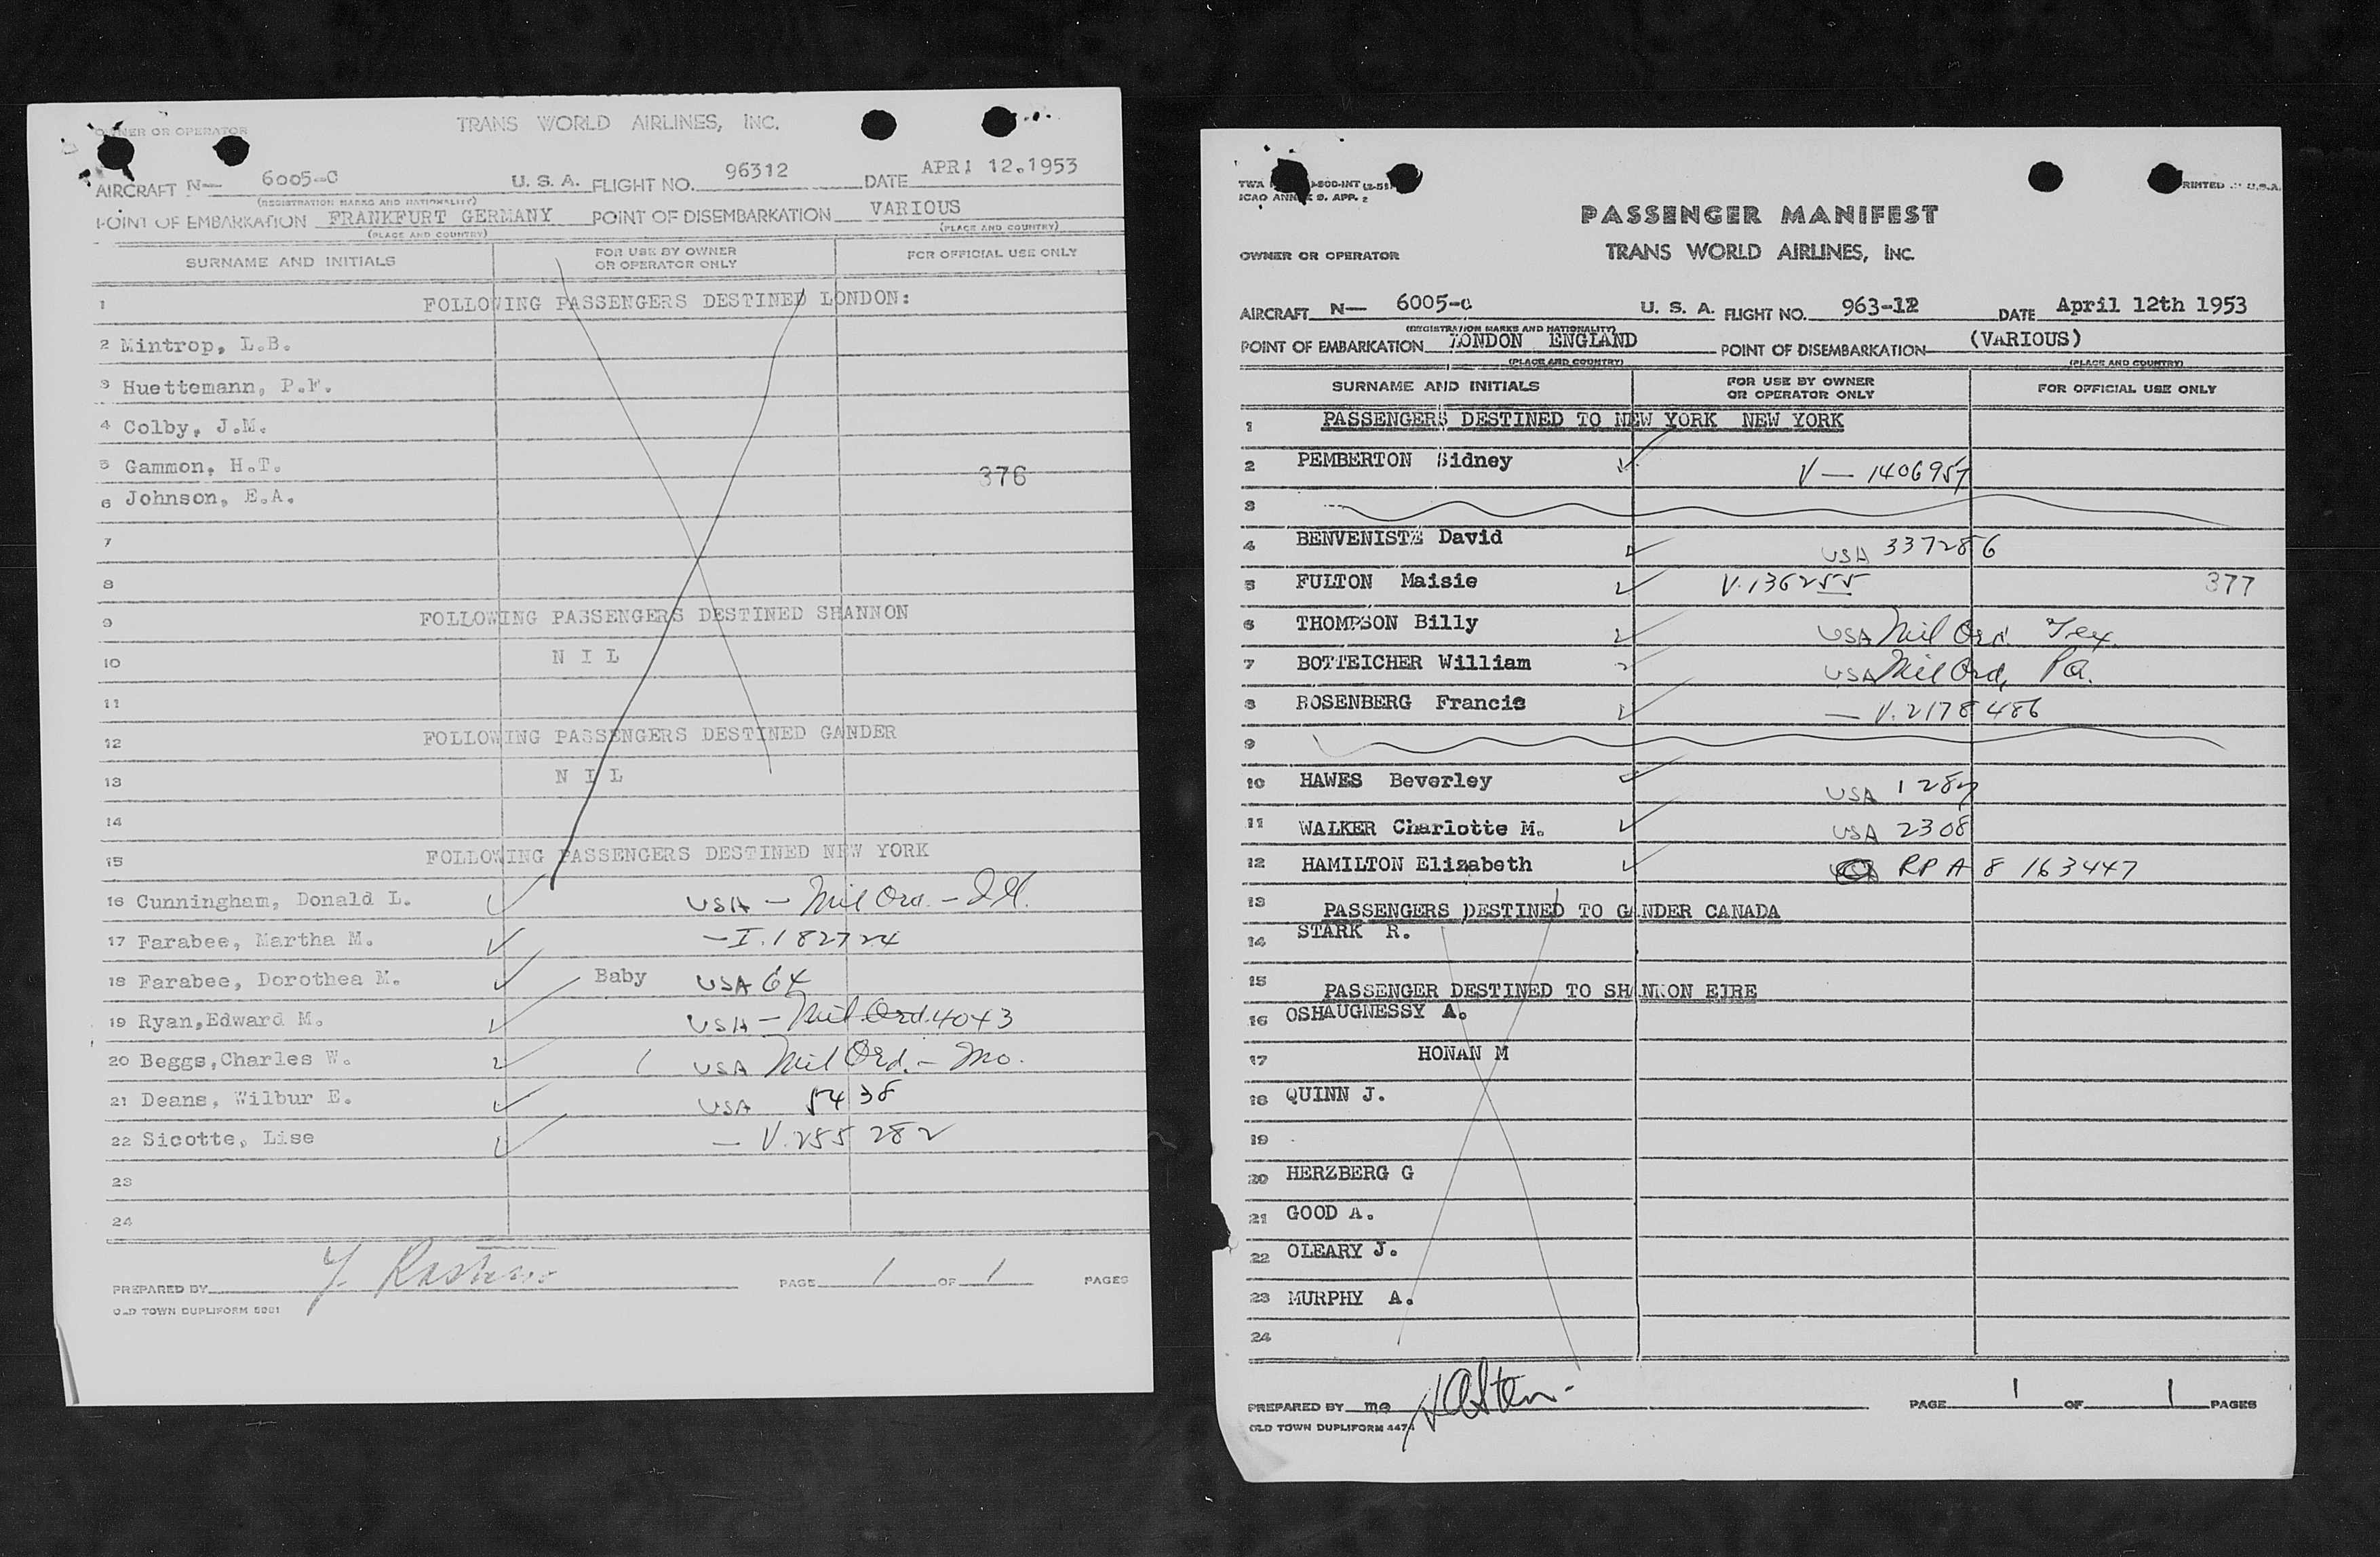 OWNER OR OPERATOR TRANS WORLD AIRLINES, INC.
AIRCRAFT N— 6005-C U. S. A. FLIGHT NO. 96312 DATE APRI 12.1953
(REGISTRATION MARKS AND NATIONALITY)
POINT OF EMBARKATION FRANKFURT GERMANY POINT OF DISEMBARKATION VARIOUS
(PLACE AND COUNTRY) (PLACE AND COUNTRY)
SURNAME AND INITIALS FOR USE BY OWNER OR OPERATOR ONLY FOR OFFICIAL USE ONLY
1 FOLLOWING PASSENGERS DESTINED LONDON:
2 Mintrop, L.B.
3 Huettemann, P.F.
4 Colby, J.M.
5 Gammon, H.T. 376
6 Johnson, E.A.
7
8
9 FOLLOWING PASSENGERS DESTINED SHANNON
10 N I L
11
12 FOLLOWING PASSENGERS DESTINED GANDER
13 N I L
14
15 FOLLOWING PASSENGERS DESTINED NEW YORK
16 Cunningham, Donald L. USA — Mil Ord. — Ill.
17 Farabee, Martha M. — I.182724
18 Farabee, Dorothea M. Baby USA 64
19 Ryan,Edward M. USA — Mil Ord. 4043
20 Beggs,Charles W. USA Mil Ord. — Mo.
21 Deans, Wilbur E. USA 5438
22 Sicotte, Lise — V.255282
23
24
PREPARED BY PAGE 1 OF 1 PAGES
OLD TOWN DUPLIFORM 5001
PRINTED IN U.S.A.
ICAO ANNEX 9. APP. 2
PASSENGER MANIFEST
OWNER OR OPERATOR TRANS WORLD AIRLINES, INC.
AIRCRAFT N— 6005-C U. S. A. FLIGHT NO. 963-12 DATE April 12th 1953
(REGISTRATION MARKS AND NATIONALITY)
POINT OF EMBARKATION LONDON ENGLAND POINT OF DISEMBARKATION (VARIOUS)
(PLACE AND COUNTRY) (PLACE AND COUNTRY)
SURNAME AND INITIALS FOR USE BY OWNER OR OPERATOR ONLY FOR OFFICIAL USE ONLY
1 PASSENGERS DESTINED TO NEW YORK NEW YORK
2 PEMBERTON Sidney V — 1406957
3
4 BENVENISTE David USA 337286
5 FULTON Maisie V.136255 377
6 THOMPSON Billy USA Mil Ord. Tex.
7 BOTTEICHER William USA Mil Ord, Pa.
8 ROSENBERG Francis — V.2178486
9
10 HAWES Beverley USA 1287
11 WALKER Charlotte M. USA 2308
12 HAMILTON Elizabeth RP A 8 163447
13 PASSENGERS DESTINED TO GANDER CANADA
14 STARK R.
15 PASSENGER DESTINED TO SHANNON EIRE
16 OSHAUGNESSY A.
17 HONAN M
18 QUINN J.
19
20 HERZBERG G
21 GOOD A.
22 OLEARY J.
23 MURPHY A.
24
PREPARED BY me PAGE 1 OF 1 PAGES
OLD TOWN DUPLIFORM 4474